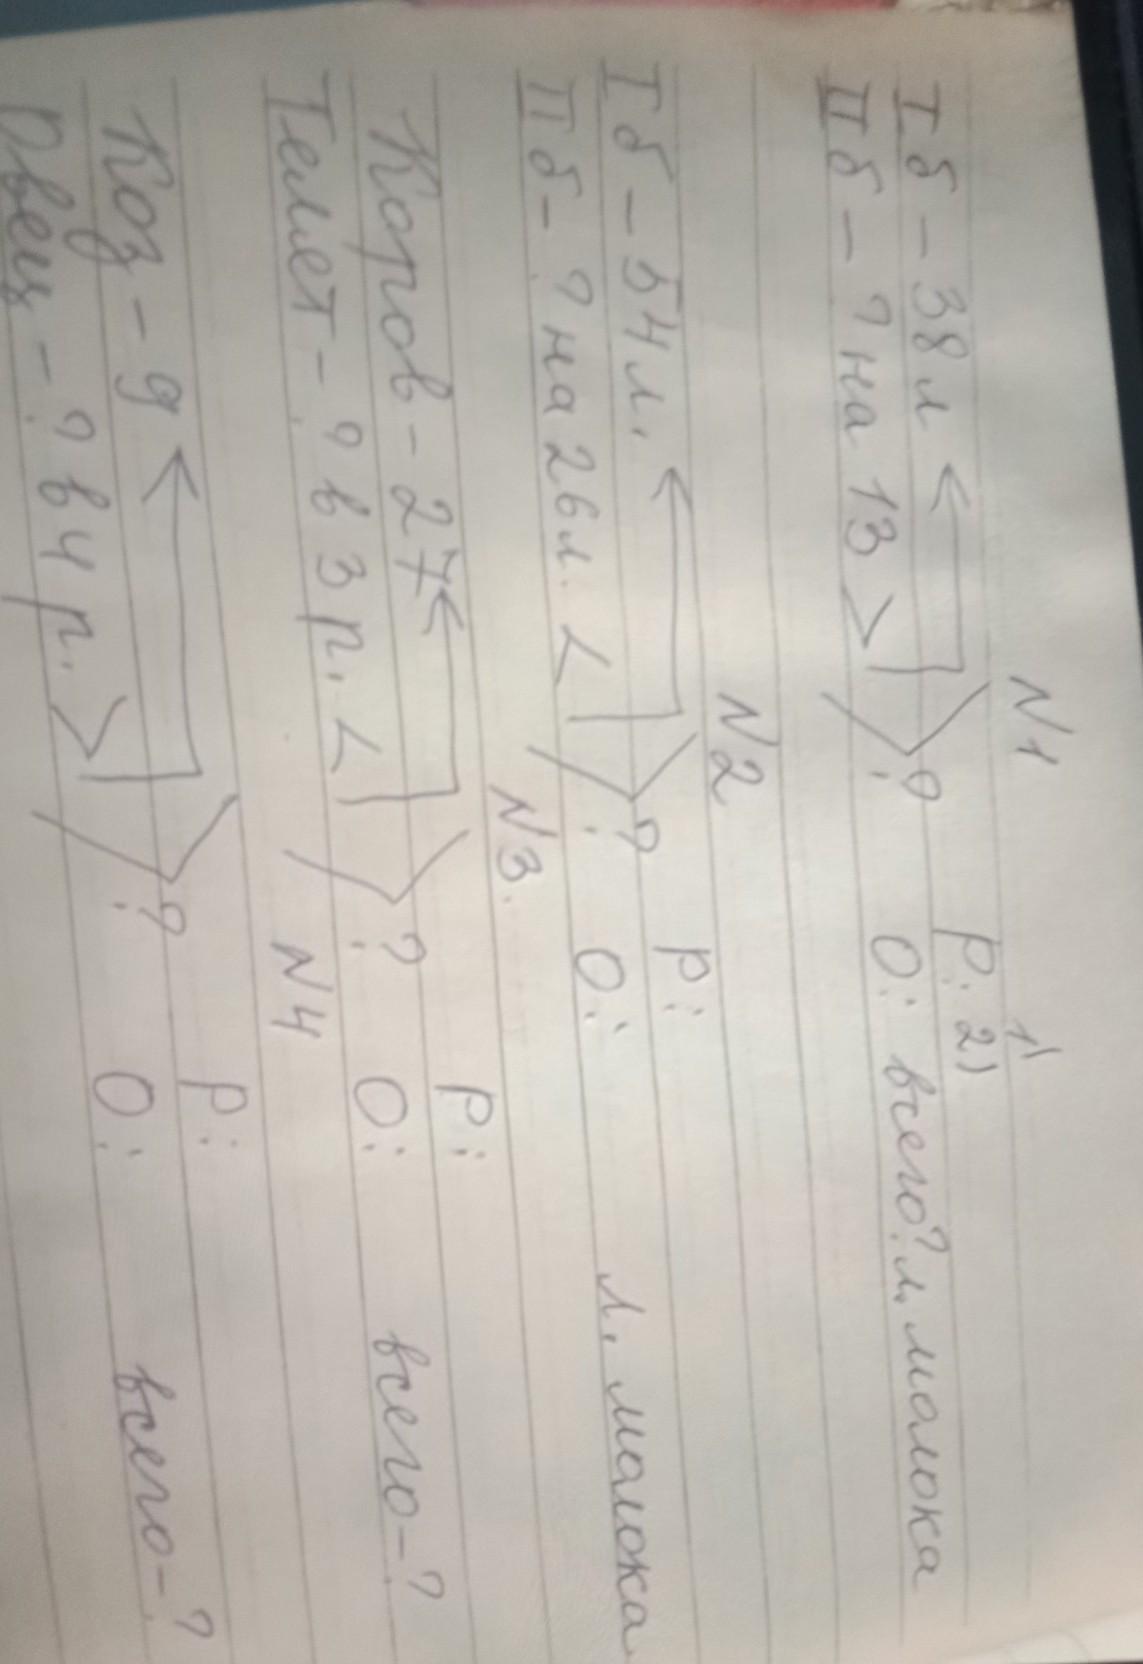 N1
1)
I б – 38 л
Р: 2)
II б – ? на 13 > ? О: всего? л. молока
N2
I б – 54 л.
Р:
II б – ? на 26 л. < ? О: л. молока
N3.
Коров – 27
Р:
Телят – ? в 3 р. < ? О: всего – ?
N4
Коз – 9
Р:
Овец – ? в 4 р. > ? О: всего – ?